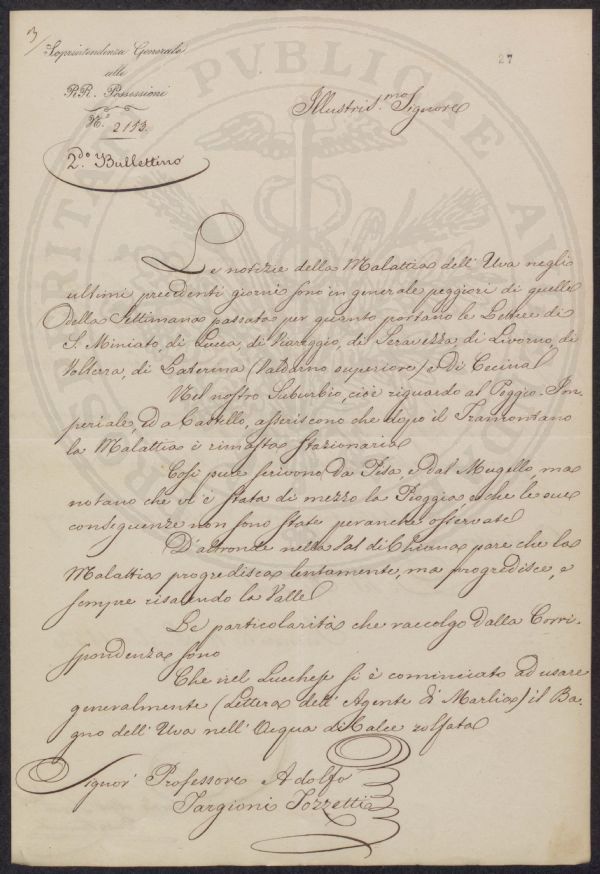 3/
Soprintendenza Generale
alle
RR. Possessioni
N.° 2153.
2.do Bullettino
27
Illustris.mo Signore
Le notizie della Malattia dell'Uva negli
ultimi precedenti giorni sono in generale peggiori di quelle
della Settimana passata per quanto portano le Lettere di
S. Miniato, di Lucca, di Viareggio, di Seravezza, di Livorno, di
Volterra, di Laterina (Valdarno superiore) e di Cecina
Nel nostro Suburbio, cioè riguardo al Poggio-Im-
periale, ed a Castello, asseriscono che dopo il Tramontano
la Malattia è rimasta stazionaria
Così pure scrivono da Pisa, e dal Mugello, ma
notano che vi è stata di mezzo la Pioggia, e che le sue
conseguenze non sono state peranche osservate
D'altronde nella Val di Chiana pare che la
Malattia progredisca lentamente, ma progredisce, e
sempre risalendo la Valle
Le particolarità che raccolgo dalla Corri-
spondenza sono
Che nel Lucchese si è cominciato ad usare
generalmente (Lettera dell'Agente di Marlia) il Ba-
gno dell'Uva nell'Acqua di Calce zolfata
Signor Professore Adolfo
Targioni Tozzetti
PVBLICAE